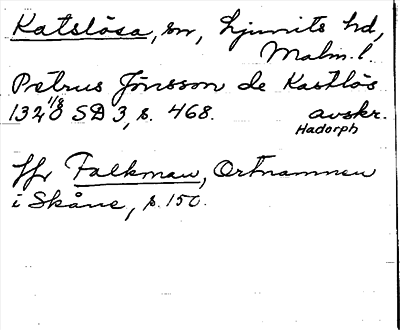 Katslösa, sn, Ljunits hd,
Malm. l.
Petrus Jönsson de Kastløs
1320 1/8 SD 3, s. 468. avskr.
Hadorph
Jfr Falkman, Ortnamnen
i Skåne, s. 150.